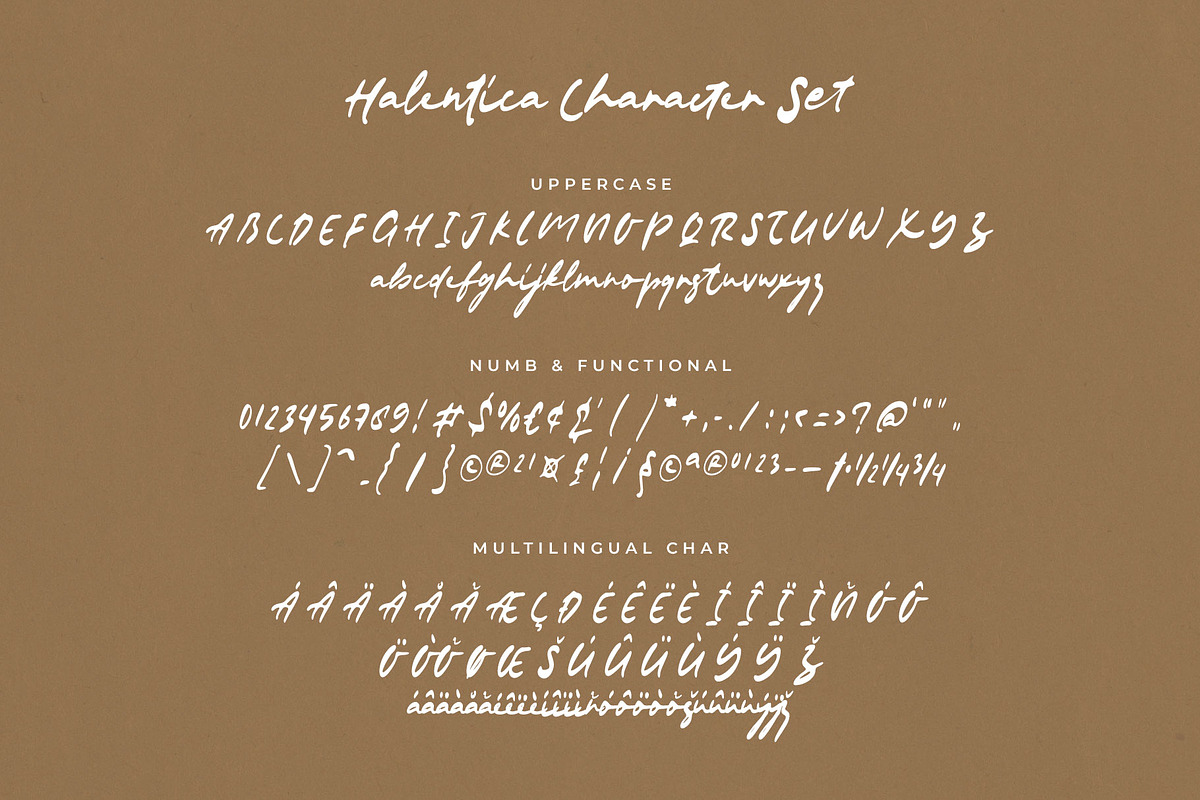 Halentica Character Set
UPPERCASE
ABCDEFGHIJKLMNOPQRSTUVWXYZ
abcdefghijklmnopqrstuvwxyz
NUMB & FUNCTIONAL
0123456789!#$%€¢£'()*+,-./:;<=>?@'"",,
[\]^_{/}©®21¤£¦¡§©ª®0123-–ƒ·1/21/43/4
MULTILINGUAL CHAR
ÁÂÄÀÅÃÆÇÐÉÊËÈÍÎÏÌÑÓÔ
ÖÒÕØŒŠÚÛÜÙÝŸŽ
áâäàåãéêëèíîïìñóôöòõšúûüùýÿž